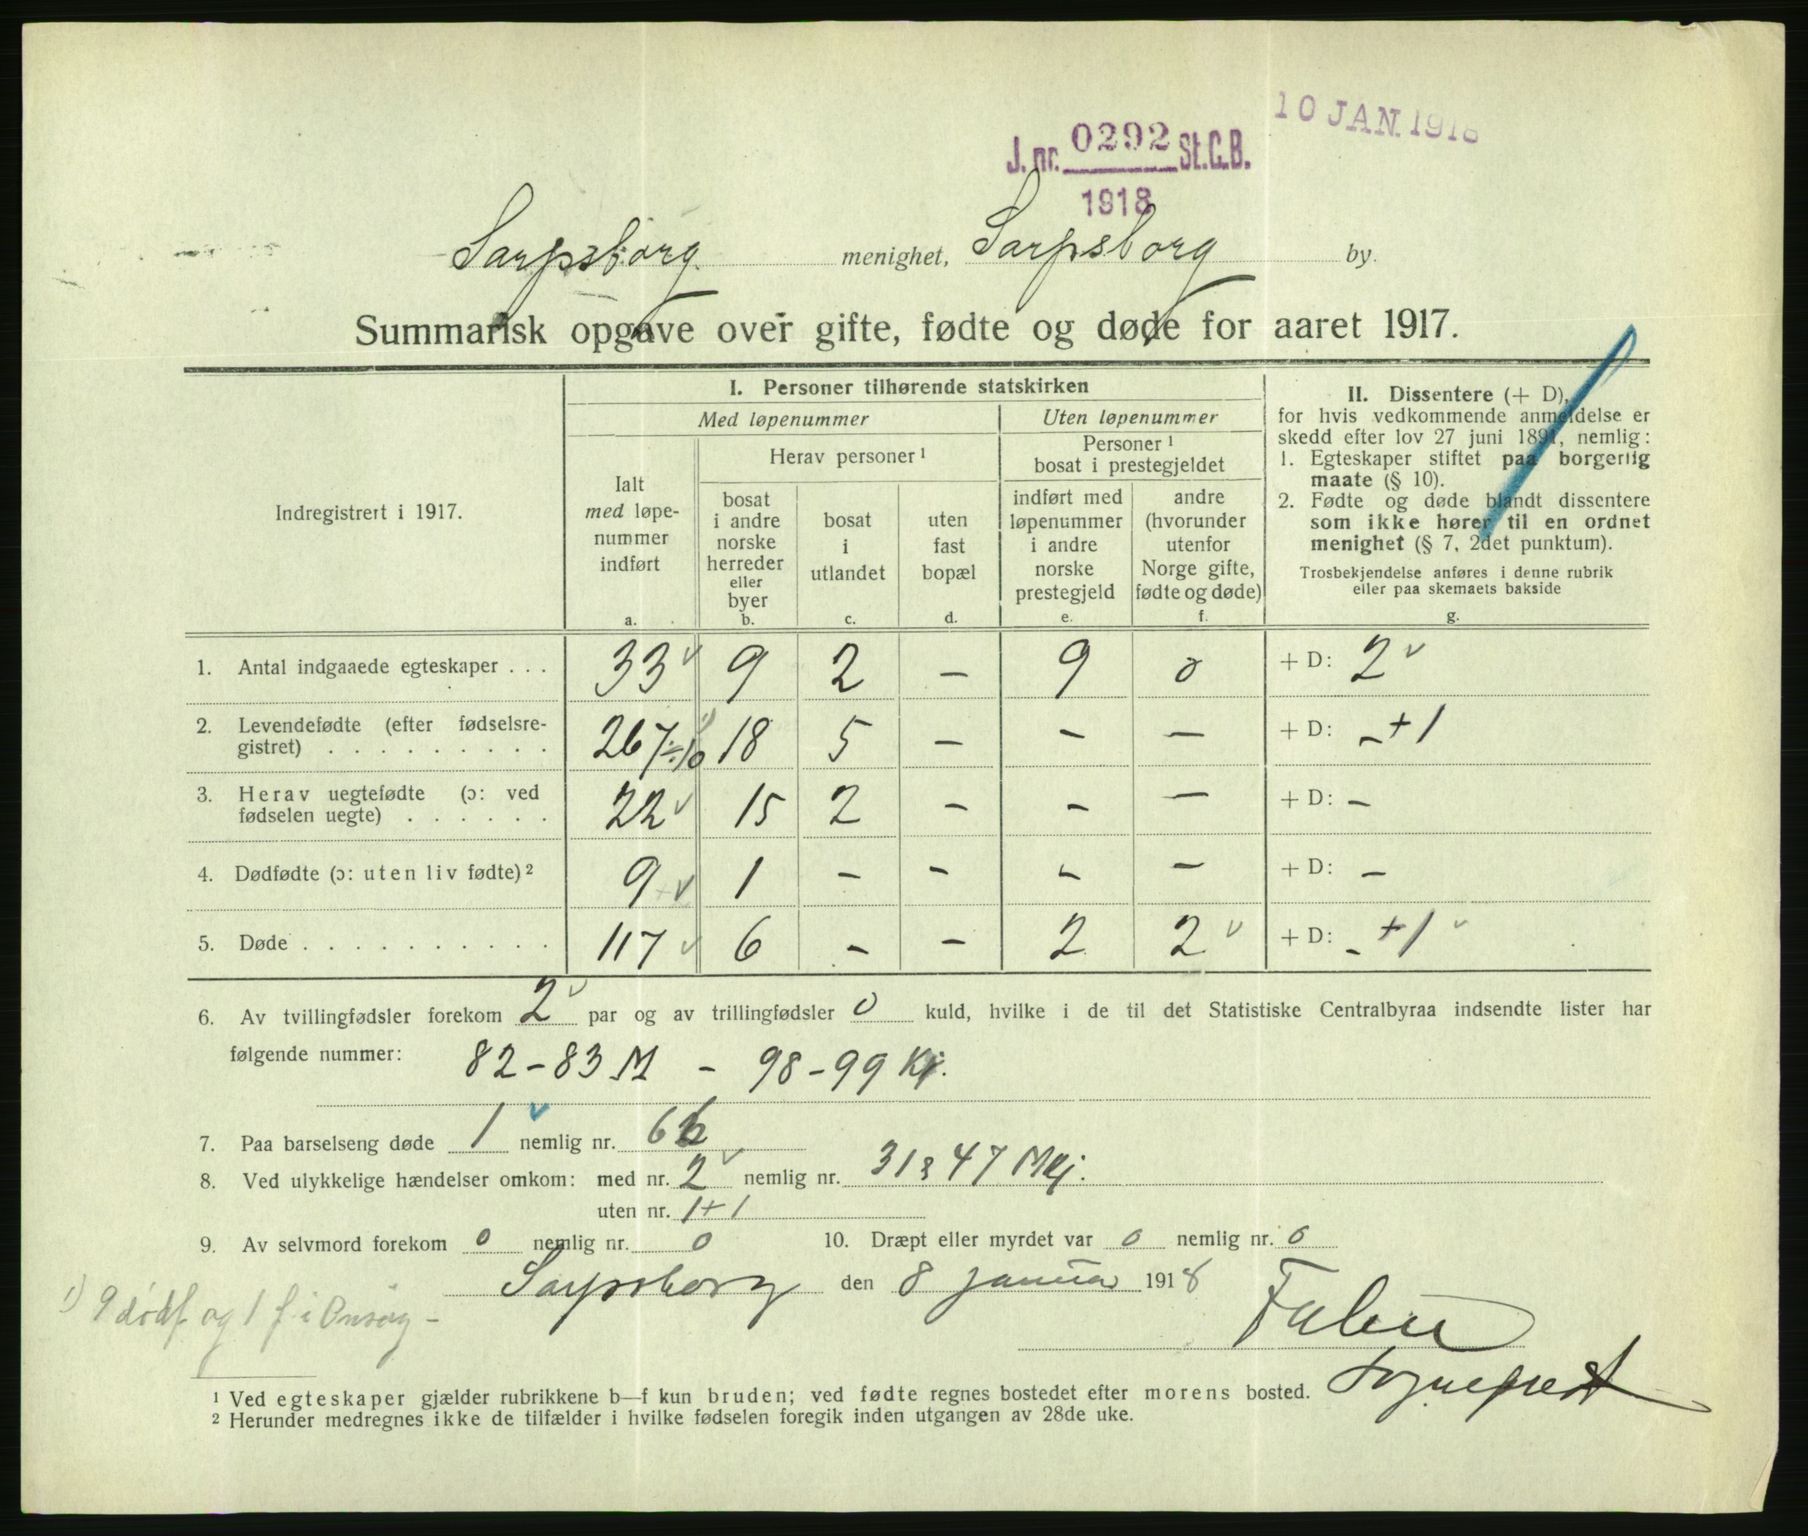 10 JAN. 1918
J. nr. 0292 St.C.B.
1918
Sarpsborg menighet, Sarpsborg by.
Summarisk opgave over gifte, fødte og døde for aaret 1917.
Indregistrert i 1917.
I. Personer tilhørende statskirken
Med løpenummer
Uten løpenummer
Ialt
med løpe-
nummer
indført
a.
Herav personer ¹
bosat
i andre
norske
herreder
eller
byer
b.
bosat
i
utlandet
c.
uten
fast
bopæl
d.
Personer ¹
bosat i prestegjeldet
indført med
løpenummer
i andre
norske
prestegjeld
e.
andre
(hvorunder
utenfor
Norge gifte,
fødte og døde)
f.
II. Dissentere (+ D),
for hvis vedkommende anmeldelse er
skedd efter lov 27 juni 1891, nemlig:
1. Egteskaper stiftet paa borgerlig
maate (§ 10).
2. Fødte og døde blandt dissentere
som ikke hører til en ordnet
menighet (§ 7, 2det punktum).
Trosbekjendelse anføres i denne rubrik
eller paa skemaets bakside
g.
1. Antal indgaaede egteskaper . . . 33 9 2 — 9 0 + D: 2
2. Levendefødte (efter fødselsre-
gistret) . . . . . . . . . 267 ÷10 ¹) 18 5 — — — + D: — +1
3. Herav uegtefødte (ɔ: ved
fødselen uegte) . . . . . . 22 15 2 — — — + D: —
4. Dødfødte (ɔ: uten liv fødte) ² 9 1 — — — — + D: —
5. Døde . . . . . . . . . . 117 6 — — 2 2 + D: — +1
6. Av tvillingfødsler forekom 2 par og av trillingfødsler 0 kuld, hvilke i de til det Statistiske Centralbyraa indsendte lister har
følgende nummer: 82-83 M - 98-99 Kj.
7. Paa barselseng døde 1 nemlig nr. 66
8. Ved ulykkelige hændelser omkom: med nr. 2 nemlig nr. 31 & 47 Mkj.
uten nr. 1+1
9. Av selvmord forekom 0 nemlig nr. 0 10. Dræpt eller myrdet var 0 nemlig nr. 0
Sarpsborg den 8 januar 1918
¹) 9 dødf og 1 f. i Onsøy -
Sogneprest
¹ Ved egteskaper gjælder rubrikkene b—f kun bruden; ved fødte regnes bostedet efter morens bosted.
² Herunder medregnes ikke de tilfælder i hvilke fødselen foregik inden utgangen av 28de uke.